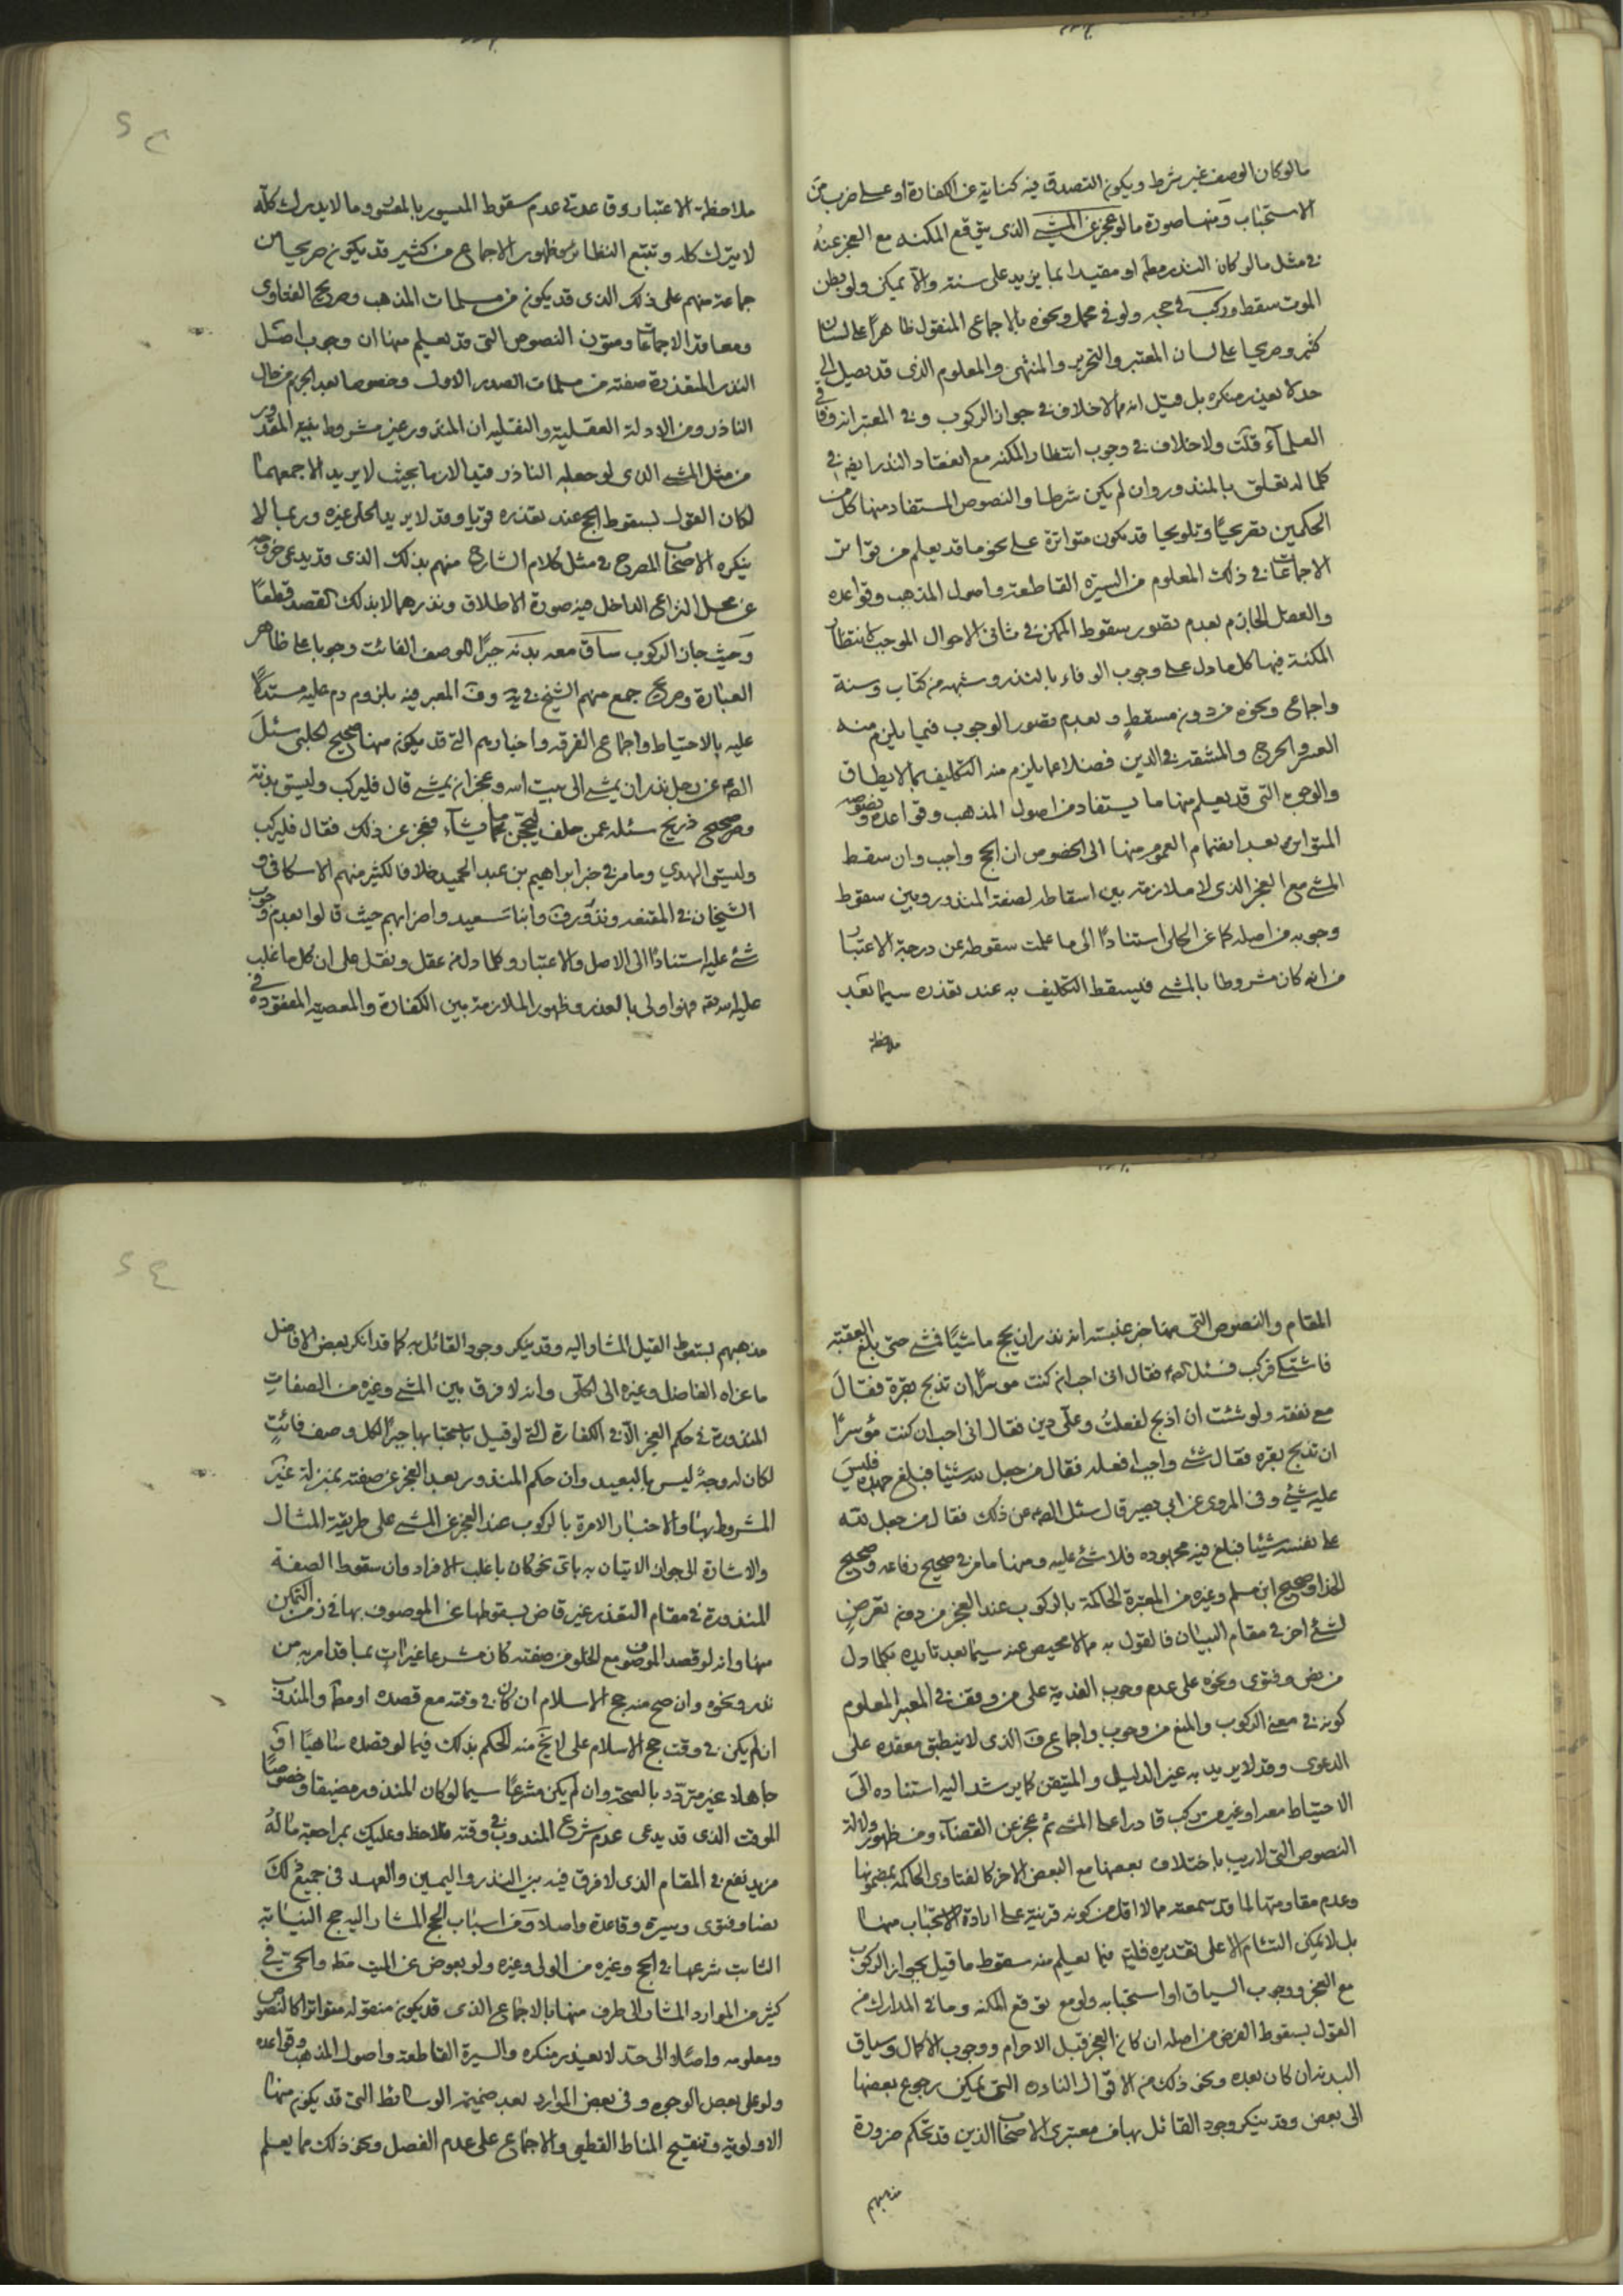 ما لو كان الوصف غير شرط ويكون التصدق فيه كناية عن الكفارة او على ضرب من
الاستحباب ومنها صورة ما لو عجز عن المشي الذي يتوقع المكنه مع العجز عنه
في مثل ما لو كان النذر مطم او مقيدا بما يزيد على سنته والا يمكن ولو بظن
الموت سقط وركب في حجه ولو في محمل ونحوه بالاجماع المنقول ظاهرا على لسان
كثير وصريحا على لسان المعتبر والتحرير والمنتهى والمعلوم الذي قد يصل الى
حد لا يعذر منكره بل قيل انه مما لا خلاف في جواز الركوب وفي المعتبر انه وفاق في
العلمآء قلت ولا خلاف في وجوب انتظار المكنه مع انعقاد النذر ايضم في
كلما له تعلق بالمنذور وان لم يكن شرطا والنصوص المستفاد منها كل من
الحكمين تصريحا وتلويحا قد يكون متواترة على نحو ما قد يعلم من تواتر
الاجماعات في ذلك المعلوم من السيرة القاطعة واصول المذهب وقواعده
والعقل الجازم بعدم تصور سقوط الممكن في ثاني الاحوال الموجب لانتظار
المكنة فيها كل ما دل على وجوب الوفاء بالنذر وشبهه من كتاب وسنة
واجماع ونحوه من دون مسقط وبعدم تصور الوجوب فيما يلزم منه
العسر والحرج والمشقة في الدين فضلا عما يلزم منه التكليف بما لا يطاق
والوجوه التي قد يعلم منها ما يستفاد من اصول المذهب وقواعده ونصوصه
المتواتره بعد انضمام العموم منها الى الخصوص ان الحج واجب وان سقط
المشي مع العجز الذي لا ملازمة بين اسقاطه لصفة المنذور وبين سقوط
وجوبه من اصله كما عن الحلي استنادا الى ما علمت سقوطه عن درجة الاعتبار
من انه كان مشروطا بالمشي فيسقط التكليف به عند تعذره سيما بعد
ملاحظة
ملاحظة الاعتبار وقاعدتي عدم سقوط الميسور بالمعسور وما لا يدرك كله
لا يترك كله وتتبع النظائر وظهور الاجماع من كثير قد يكون صريحا من
جماعة منهم على ذلك الذي قد يكون من مسلمات المذهب وصريح الفتاوى
ومعاقد الاجماعات ومتون النصوص التي قد يعلم منها ان وجوب اصل
النذر المتعذرة صفته من مسلمات الصدر الاول وخصوصا بعد الجزم من حال
الناذر ومن الادلة العقلية والنقلية ان المنذور غير مشروط بغير المقدور
من مثل المشي الذي لو جعله الناذر قيدا لازما بحيث لا يريد الا جمعهما
لكان القول بسقوط الحج عند تعذره قويا وقد لا يريد الحلي غيره وربما لا
ينكره الاصحاب المصرح في مثل كلام الشارح منهم بذلك الذي قد يدعى خروجه
عن محل النزاع الداخل فيه صورة الاطلاق ونذرهما لا بذلك القصد قطعا
وحيث جاز الركوب ساق معه بدنه جبرا للوصف الفائت وجوبا على ظاهر
العبارة وصريح جمع منهم الشيخ في يه وف المعبر فيه بلزوم دم عليه مستدلا
عليه بالاحتياط واجماع الفرقه واخبارهم التي قد يكون منها صحيح الحلبي سئل
الصم عن رجل نذر ان يمشي الى بيت الله وعجز ان يمشي قال فليركب وليسق بدنة
وصحيح ذريح سئله عمن حلف ليحجن ماشيا فعجز عن ذلك فقال فليركب
وليسق الهدي وما مر في خبر ابراهيم بن عبد الحميد خلافا لكثير منهم الاسكافي و
الشيخان في المقنعه ونذور ف وابنا سعيد واضرابهم حيث قالوا بعدم وجوب
شئ عليه استنادا الى الاصل والاعتبار وكلما دل من عقل ونقل على ان كل ما غلب
عليه الله فهو اولى بالعذر وظهور الملازمة بين الكفارة والمعصية المفقودة في
المقام والنصوص التي منها خبر عنبسة انه نذر ان يحج ماشيا فمشى حتى بلغ العقبه
فاشتكى فركب فسئل الصم فقال اني احب ان كنت موسرا ان تذبح بقرة فقال
مع نفقه ولو شئت ان اذبح لفعلت وعلي دين فقال اني احب ان كنت مؤسرا
ان تذبح بقره فقال شئ واجب افعله فقال من جعل لله شيئا فبلغ جهده فليس
عليه شئ وفي المروي عن ابي بصير قال سئل الصم عن ذلك فقال من جعل لله
على نفسه شيئا فبلغ فيه مجهوده فلا شئ عليه ومنها ما مر في صحيح رفاعه وصحيح
الحذا وصحيح ابن مسلم وغيره من المعتبرة الحاكمة بالركوب عند العجز من دون تعرض
لشئ اخر في مقام البيان فالقول به مما لا محيص عنه سيما بعد تاييده بكلما دل
من نص وفتوى ونحوه على عدم وجوب الفدية على من وقف في المعبر المعلوم
كونه في معنى الركوب والمنع من وجوب واجماع ف الذي لا ينطبق معقده على
الدعوى وقد لا يريد به غير الدليل والمتيقن كما يرشد اليه استناده الى
الاحتياط معه او غيره من ركب قادرا على المشي ثم عجز عن القضآء ومن ظهور دلالة
النصوص التي لا ريب باختلاف بعضها مع البعض الاخر كالفتاوى الحاكمة بمضمونها
وعدم مقاومتها لما قد سمعته مما لا اقل من كونه قرينة على ارادة الاستحباب منها
بل لا يمكن التئام الا على تقديره فليتم فيما يعلم منه سقوط ما قيل بجواز الركوب
مع العجز ووجوب السياق او استحبابه ولو مع توقع المكنه وما في المدارك من
القول بسقوط الفرض من اصله ان كان العجز قبل الاحرام ووجوب الاكمال وسياق
البدنه ان كان بعده ونحو ذلك من الاقوال النادره التي يمكن رجوع بعضها
الى بعض وقد ينكر وجود القائل بها من معتبري الاصحاب الذين قد تحكم ضرورة
مذهبهم
مذهبهم بسقوط القيل المشار اليه وقد ينكر وجود القائل به كما قد انكر بعض الافاضل
ما عزاه الفاضل وغيره الى الحلي وانه لا فرق بين المشي وغيره من الصفات
المنذورة في حكم العجز الا في الكفارة التي لو قيل باستحبابها جبرا لكل وصف فائت
لكان له وجه ليس بالبعيد وان حكم المنذور بعد العجز عن صفته بمنزلة غير
المشروط بها والاخبار الامرة بالركوب عند العجز عن المشي على طريقة المثال
والاشارة الى جواز الاتيان به باي نحو كان باغلب الافراد وان سقوط الصفة
المنذورة في مقام التعذر غير قاض بسقوطها عن الموصوف بها في زمن التمكن
منها وانه لو قصد الموصوف مع الخلو من صفته كان مشرعا غير ات بما قد امر به من
نذر ونحوه وان صح منه حج الاسلام ان كان في وقته مع قصده او مطم والمندوب
ان لم يكن في وقت حج الاسلام على لا يخ منه الحكم بذلك فيما لو قصده ساهيا او
جاهلا غير متردد بالصحة وان لم يكن مشرعا سيما لو كان المنذور مضيقا وخصوصا
الموقت الذي قد يدعى عدم شرع المندوب في وقته فلاحظ وعليك بمراجعة ما له
مزيد نفع في المقام الذي لا فرق فيه بين النذر واليمين والعهد في جميع ذلك
نصا وفتوى وسيرة وقاعدة واصلا ومن اسباب الحج المشار اليه حج النيابة
الثابت شرعها في الحج وغيره من الولي وغيره ولو بعوض عن الميت مطم والحي في
كثير من الموارد المشار الى طرف منها بالاجماع الذي قد يكون منقوله متواترا كالنصوص
ومعلومه واصلا الى حد لا يعذر منكره والسيرة القاطعة واصول المذهب وقواعده
ولو على بعض الوجوه وفي بعض الموارد بعد ضميمة الوسائط التي قد يكون منها
الاولوية وتنقيح المناط القطعي والاجماع على عدم الفصل ونحو ذلك مما يعلم